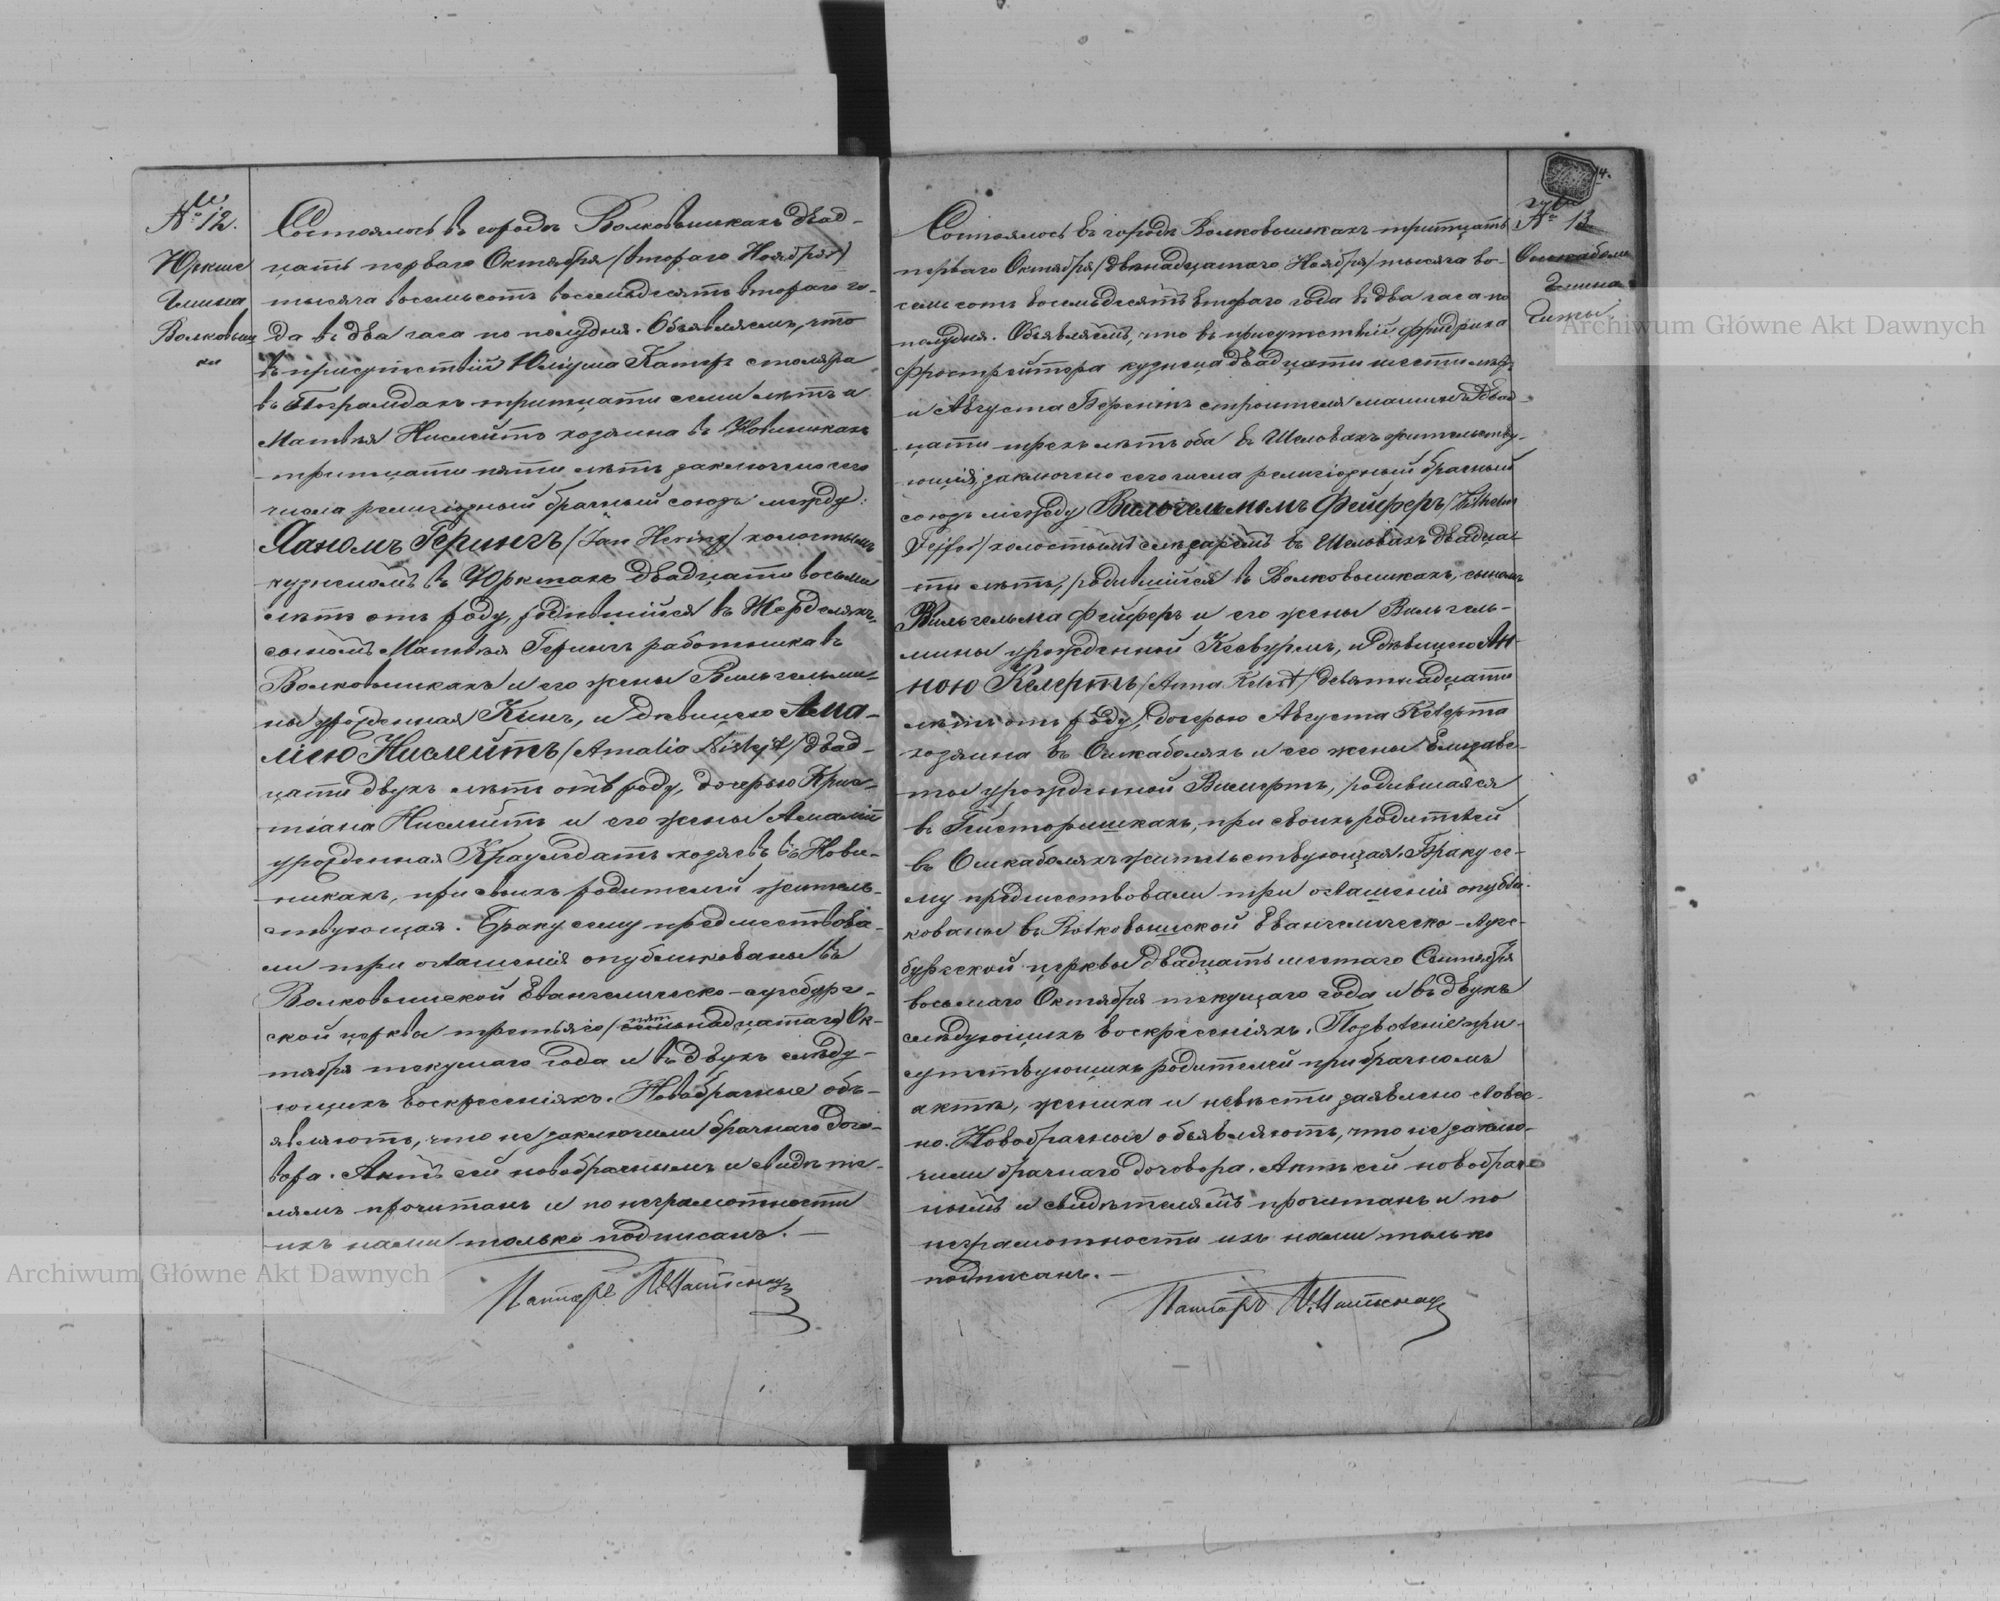 № 12.
Юркше
Гмина
Волковыш
ки
Состоялось въ городѣ Волковышкахъ двад-
цать перваго Октября (втораго Ноября)
тысяча восемьсотъ восемьдесятъ втораго го-
да въ два часа по полудня. Объявляемъ, что
въ присутствіи столяра
въ тритцати семи лѣтъ и
Матвѣя Нислейтъ хозяина въ Новиникахъ
тритцати пяти лѣтъ заключено сего
числа религіозный брачный союзъ между:
Яаномъ Герингъ (Jan Hering) холостымъ
кузнецомъ въ Юркшахъ двадцати восьми
лѣтъ отъ роду, родившійся въ Жерделяхъ,
сыномъ Матвѣя Герингъ работника въ
Волковышкахъ и его жены Вильгельми-
ны урожденная Кинъ, и дѣвицею Ама-
ліею Нислейтъ (Amalia Nislejt) двад-
цати двухъ лѣтъ отъ роду, дочерью Крис-
тіана Нислейтъ и его жены Амаліи
урожденная хозяевъ въ Нови-
никахъ, при своихъ родителей житель-
ствующая. Браку сему предшествова-
ли три оглашенія опубликованы въ
Волковышской Евангелическо-аугсбург-
ской церкви третьяго (пятнадцатаго) Ок-
тября текущаго года и въ двухъ слѣду-
ющихъ воскресеніяхъ. Новобрачные объ-
являютъ, что не заключили брачнаго дого-
вора. Актъ сей новобрачнымъ и свидѣте-
лямъ прочитанъ и по неграмотности
ихъ нами только подписанъ.
Пасторъ
14.
№ 13
Ошкаболи
Гмина
Гижы.
Состоялось въ городѣ Волковышкахъ тритцать
перваго Октября (двѣнадцатаго Ноября) тысяча во-
семь сотъ восемьдесятъ втораго года въ два часа по
полудня. Объявляемъ, что въ присутствіи Фридриха
кузнеца двадцати шести лѣтъ
и Августа Берентъ строителя машинъ двад-
цати трехъ лѣтъ оба въ Шеловахъ жительству-
ющія, заключено сего числа религіозный брачный
союзъ между Вильгельмомъ Фейферъ (Wilhelm
Fejfer) холостымъ слѣсаремъ въ Шеловахъ двадца-
ти лѣтъ, родившійся въ Волковышкахъ, сыномъ
Вильгельма Фейферъ и его жены Вильгель-
мины урожденной и дѣвицею Ан-
ною Келертъ (Anna Kelert) девятнадцати
лѣтъ отъ роду, дочерью Августа Келерта
хозяина въ Ошкаболяхъ и его жены Елизаве-
ты урожденной родившаяся
въ при своихъ родителей
въ Ошкаболяхъ жительствующая. Браку се-
му предшествовали три оглашенія опубли-
кованы въ Волковышской Евангелическо-Аугс-
бургской церквы двадцать шестаго Сентября
восьмаго Октября текущаго года и въ двухъ
слѣдующихъ воскресеніяхъ. Позволеніе при-
сутствующихъ родителей при брачномъ
актѣ, жениха и невѣсти заявлено словес-
но. Новобрачные объявляютъ, что не заклю-
чили брачнаго договора. Актъ сей новобрач-
нымъ и свидѣтелямъ прочитанъ и по
неграмотности ихъ нами только
подписанъ.
Пасторъ
Archiwum Główne Akt Dawnych
Archiwum Główne Akt Dawnych